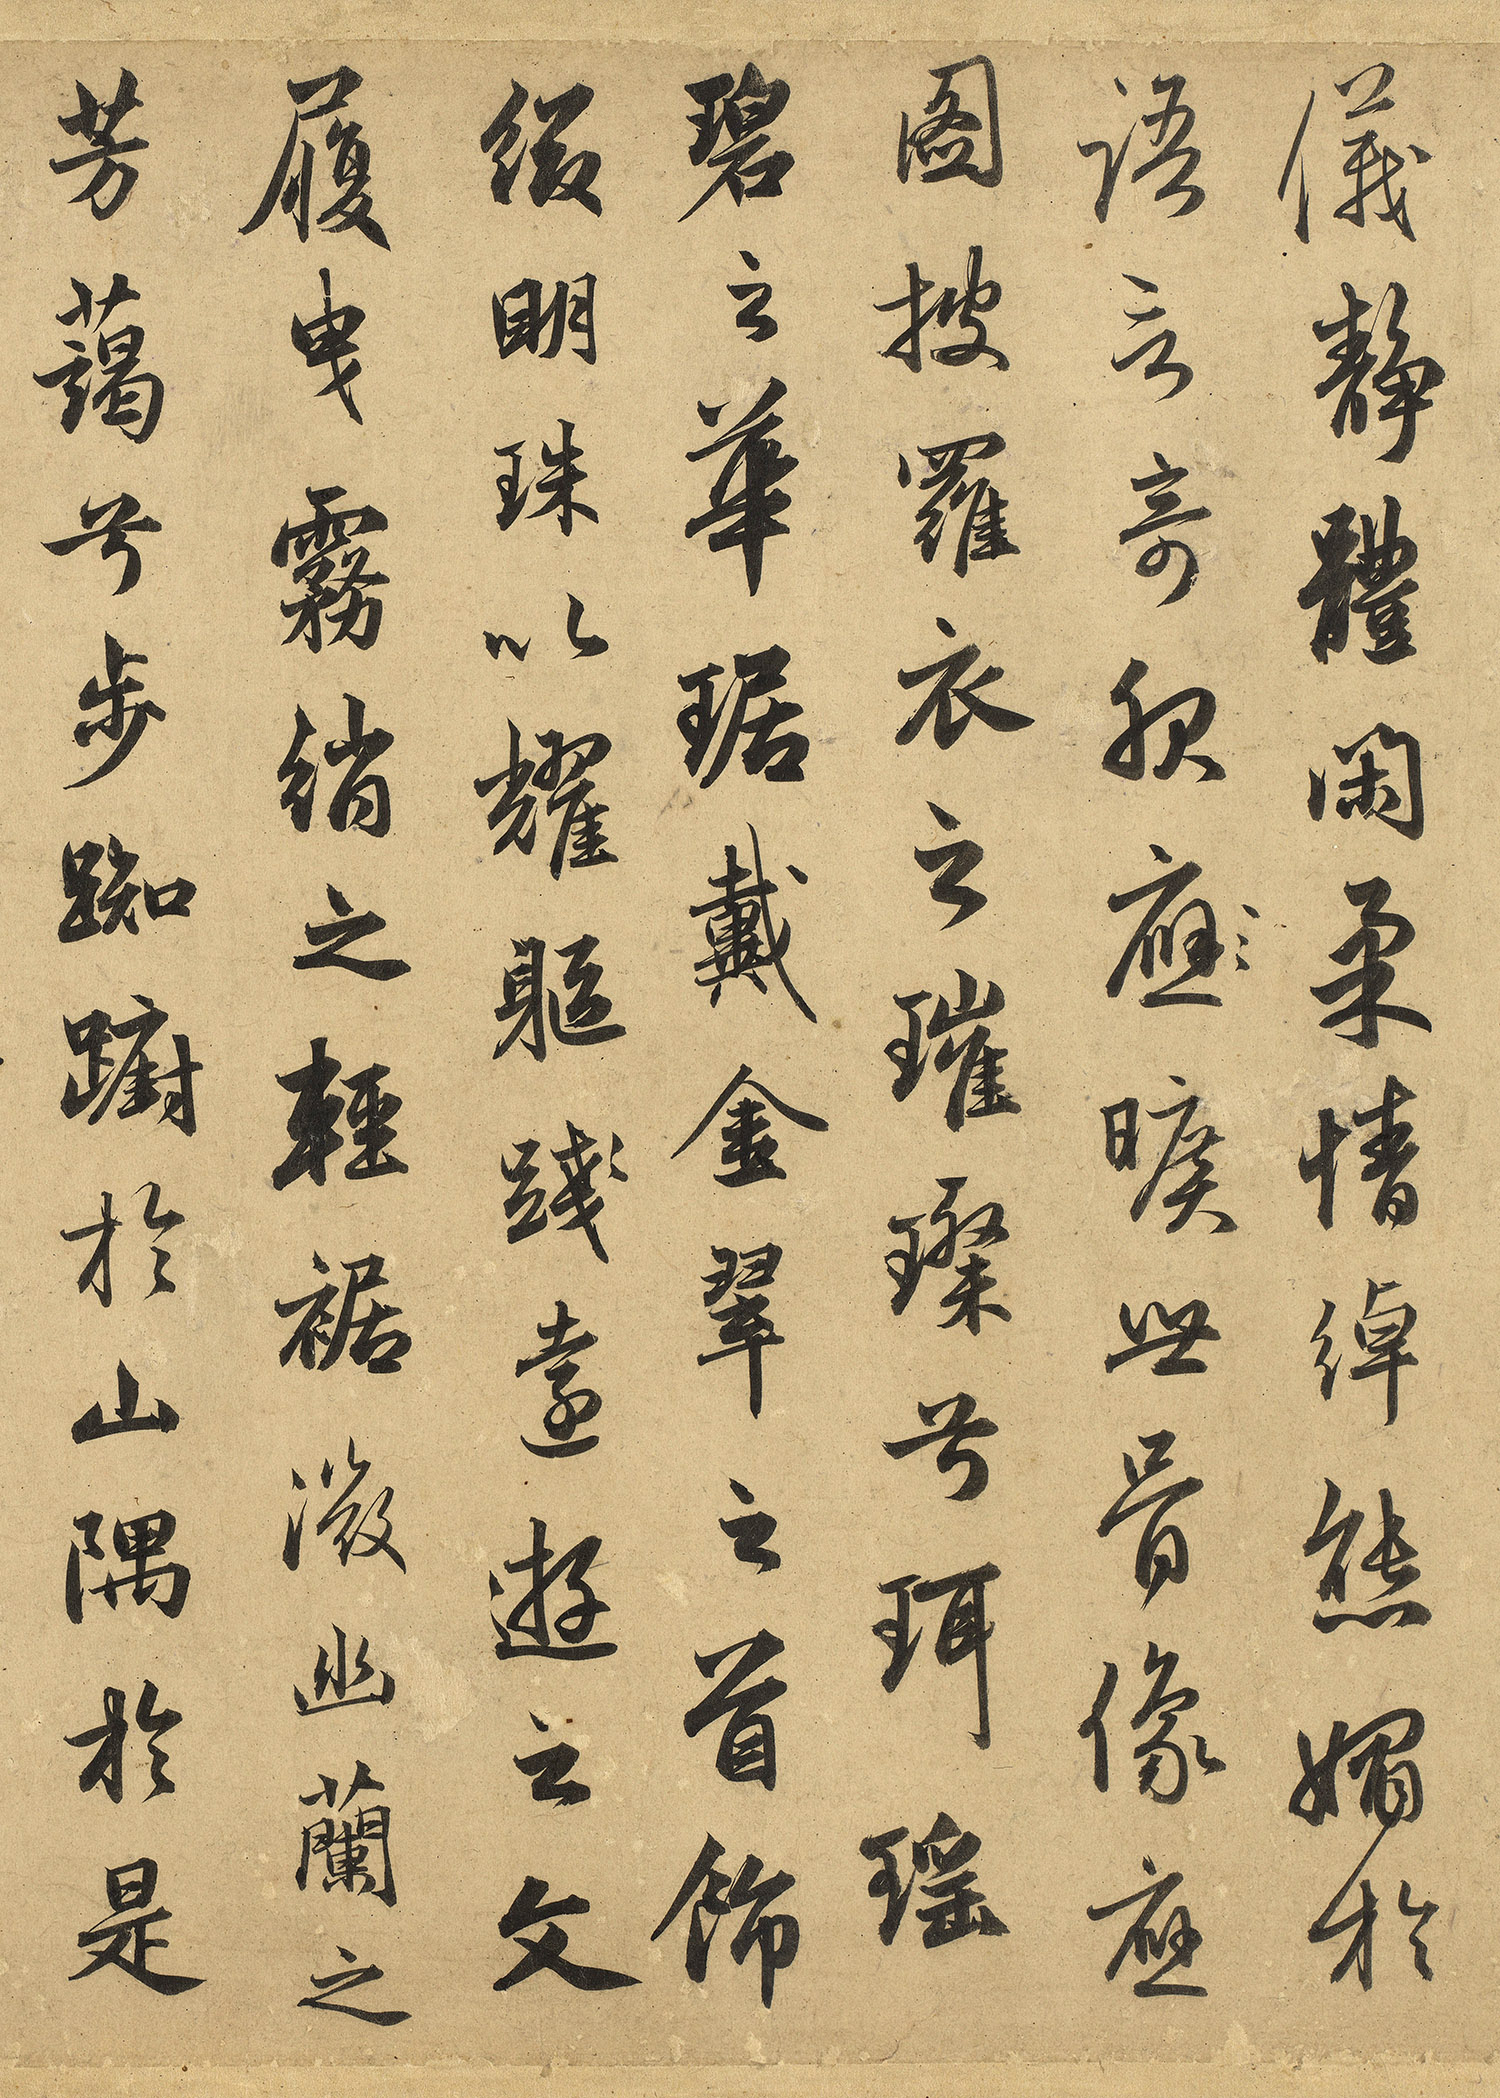 儀靜體閑柔情綽態媚於
語言奇服應曠世骨像應
圖披羅衣之璀璨兮珥瑶
碧之華琚戴金翠之首飾
綴明珠以耀軀踐遠遊之文
履曳霧綃之輕裾微幽蘭之
芳藹兮步踟躕於山隅於是